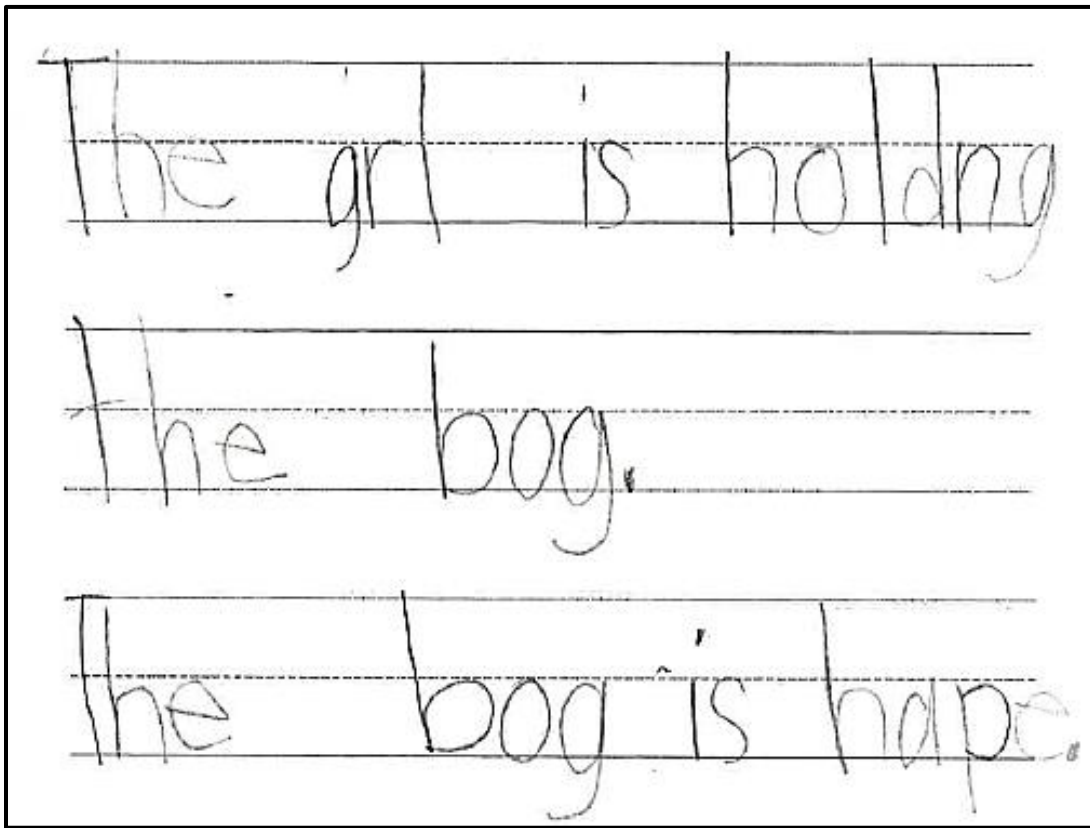 The grl is holdng
the bog.
The bog is hape.